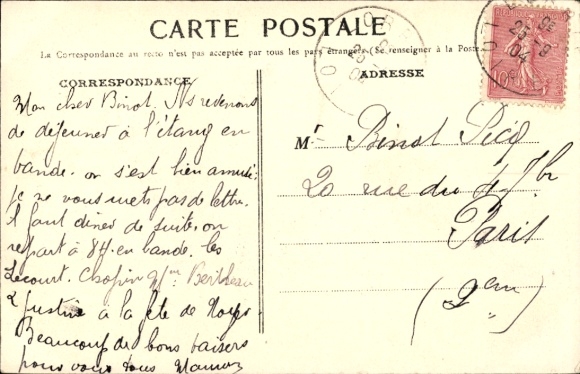 CARTE POSTALE
La Correspondance au recto n'est pas acceptée par tous les pays étrangers (Se renseigner à la Poste
CORRESPONDANCE
ADRESSE
Mon cher Binot. Ns revenons
de déjeuner à l'étang en
bande. on s'est bien amusé.
je ne vous mets pas de lettre.
Il faut dîner de suite. on
repart à 8H. en bande. les
Lecourt. Chopin Mme Bertheau
à la fête de
Beaucoup de bons baisers
pour vous tous
Mr Binot Picq
20 rue du 4 7bre
Paris
(2em)
25 -8
04
10